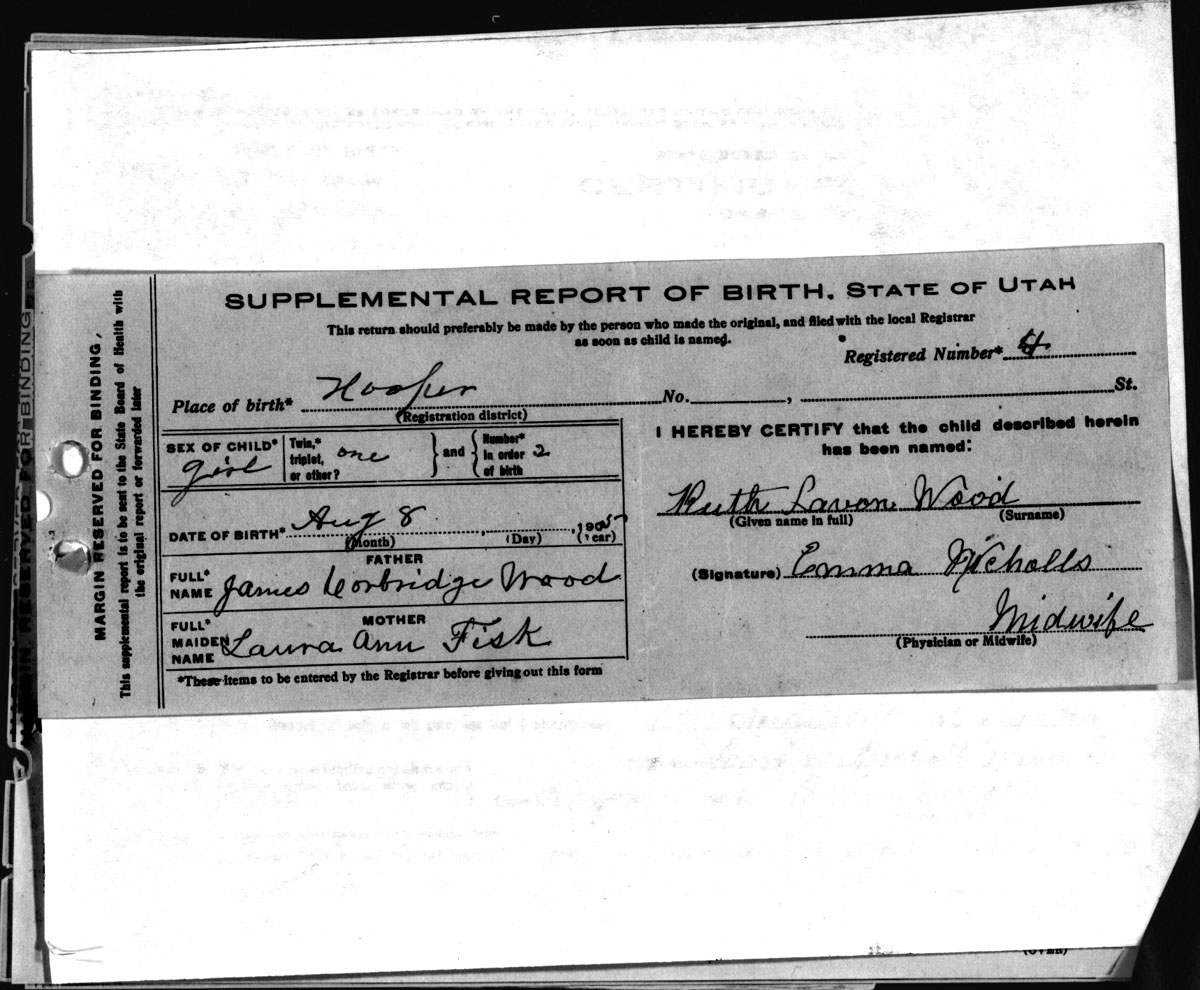 SUPPLEMENTAL REPORT OF BIRTH. STATE OF UTAH
This return should preferably be made by the person who made the original, and filed with the local Registrar
as soon as child is named.
Registered Number* 4
Place of birth* Hooper No. , St.
(Registration district)
SEX OF CHILD* girl
Twin,* triplet, or other? one } and { Number* in order of birth 2
DATE OF BIRTH* Aug 8 , , 1905
(Month) (Day) (Year)
FATHER
FULL* NAME James Corbridge Wood
MOTHER
FULL* MAIDEN NAME Laura Ann Fisk
*These items to be entered by the Registrar before giving out this form
I HEREBY CERTIFY that the child described herein
has been named:
Ruth Lavon Wood
(Given name in full) (Surname)
(Signature) Emma Nicholls
Midwife
(Physician or Midwife)
MARGIN RESERVED FOR BINDING,
This supplemental report is to be sent to the State Board of Health with
the original report or forwarded later
MARGIN RESERVED FOR BINDING
(OVER)